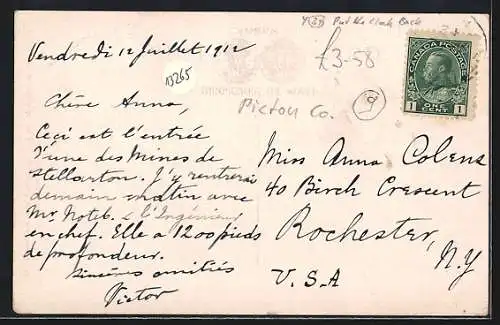 Put the Clock Back
£3-58
13265
Pictou Co.
CANADA POSTAGE
1 ONE CENT 1
Vendredi 12 Juillet 1912
Chère Anna,
Ceci est l'entrée
d'une des mines de
Stellarton. J'y rentrerai
demain matin avec
Mr. Noteb. & l'Ingénieur
en chef. Elle a 1200 pieds
de profondeur.
Sincères amitiés
Victor
Miss Anna Colens
40 Birch Crescent
Rochester,
N.Y
U.S.A